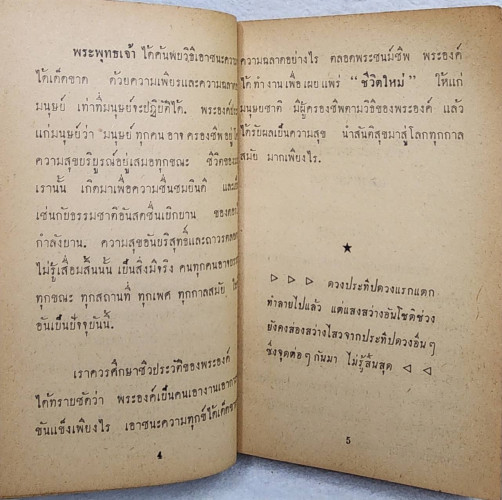 พระพุทธเจ้า ได้ค้นพบวิธีเอาชนะความ
ได้เด็ดขาด ด้วยความเพียรและความฉลาด
มนุษย์ เท่าที่มนุษย์จะปฏิบัติได้. พระองค์
แก่มนุษย์ว่า "มนุษย์ ทุกคน อาจ ครองชีพ อยู่
ความสุขบริบูรณ์อยู่เสมอทุกขณะ ชีวิตของ
เรานั้น เกิดมาเพื่อความชื่นชมยินดี
เช่นกับธรรมชาติอันสดชื่นเยิกบาน ของ
กำลังบาน. ความสุขอันบริสุทธิ์และถาวรตลอด
ไม่รู้เสื่อมสิ้นนั้น เป็นสิ่งมีจริง คนทุกคนอาจ
ทุกขณะ ทุกสถานที่ ทุกเพศ ทุกกาลสมัย
อันเป็นปัจจุบันนี้.
เราควรศึกษาชีวประวัติของพระองค์
ได้ทราบชัดว่า พระองค์เป็นคนเอางานเอาการ
ขันแข็งเพียงไร เอาชนะความทุกข์ได้เด็ดขาด
4
ความฉลาดอย่างไร ตลอดพระชนม์ชีพ พระองค์
ได้ทำงานเพื่อเผยแพร่ "ชีวิตใหม่" ให้แก่
มนุษยชาติ มีผู้ครองชีพตามวิธีของพระองค์ แล้ว
ได้รับผลเป็นความสุข นำสันติสุขมาสู่โลกทุกกาล
สมัย มากเพียงไร.
★
▷ ▷ ▷ ดวงประทีปดวงแรกแตก
ทำลายไปแล้ว แต่แสงสว่างอันโชติช่วง
ยังคงส่องสว่างไสวจากประทีปดวงอื่นๆ
ซึ่งจุดต่อๆกันมา ไม่รู้สิ้นสุด ◁ ◁
5